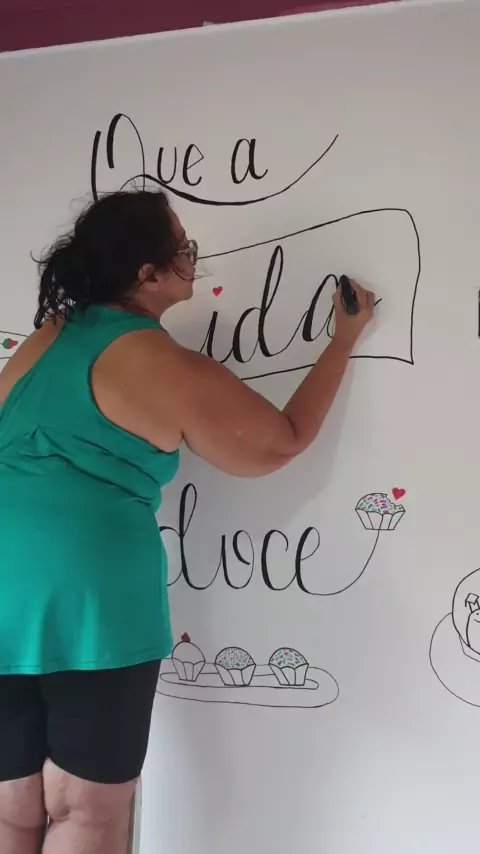 Que a
ida
doce